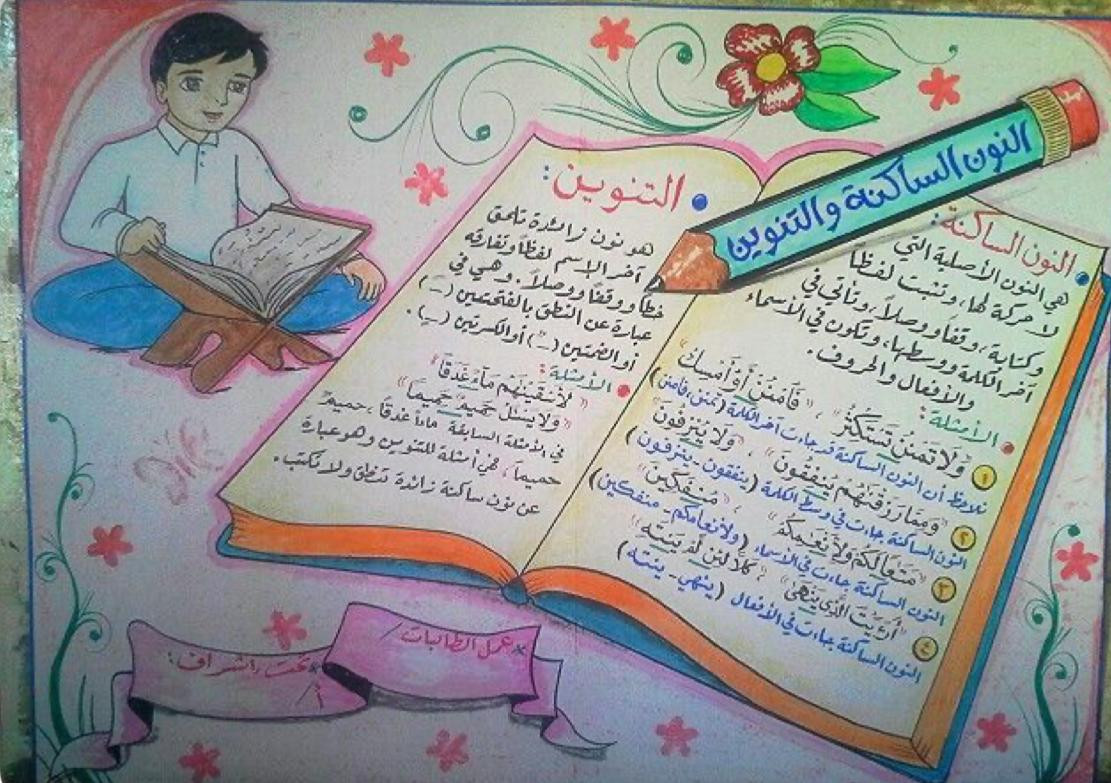 النون الساكنة والتنوين
النون الساكنة:
هي النون الأصلية التي
لا حركة لها، وتثبت لفظاً
وكتابة، وقفاً ووصلاً، وتأتي في
آخر الكلمة ووسطها، وتكون في الأسماء
والأفعال والحروف.
الأمثلة:
١ "وَلَا تَمْنُن تَسْتَكْثِرُ" ، "فَامْنُنْ أَوْ أَمْسِكْ"
نلاحظ أن النون الساكنة قد جاءت آخر الكلمة (تمنن، فامنن)
٢ "وَمِمَّا رَزَقْنَهُمْ يُنفِقُونَ" ، "وَلَا يُنزِفُونَ"
النون الساكنة جاءت في وسط الكلمة (ينفقون - ينزفون)
٣ "مَتَعًا لَكُمْ وَلِأَنْعَمِكُمْ" ، "مُنفَكِّينَ"
النون الساكنة جاءت في الأسماء (ولأنعامكم - منفكين)
٤ "أَرَءَيْتَ الَّذِى يَنْهَىٰ" ، "كَلَّا لَئِن لَّمْ يَنتَهِ"
النون الساكنة جاءت في الأفعال (ينهى - ينته)
التنوين:
هو نون زائدة تلحق
آخر الاسم لفظاً وتفارقه
خطاً ووقفاً ووصلاً. وهي في
عبارة عن النطق بالفتحتين (ـً)
أو الضمتين (ـٌ) أو الكسرتين (ـٍ).
الأمثلة:
"لَأَسْقَيْنَهُم مَّاءً غَدَقًا"
"وَلَا يَسْـَٔلُ حَمِيمٌ حَمِيمًا"
في الأمثلة السابقة ماءً غدقاً، حميمٌ
حميماً، هي أمثلة للتنوين وهو عبارة
عن نون ساكنة زائدة تنطق ولا تكتب.
*عمل الطالبات /
*تحت إشراف:
أ /